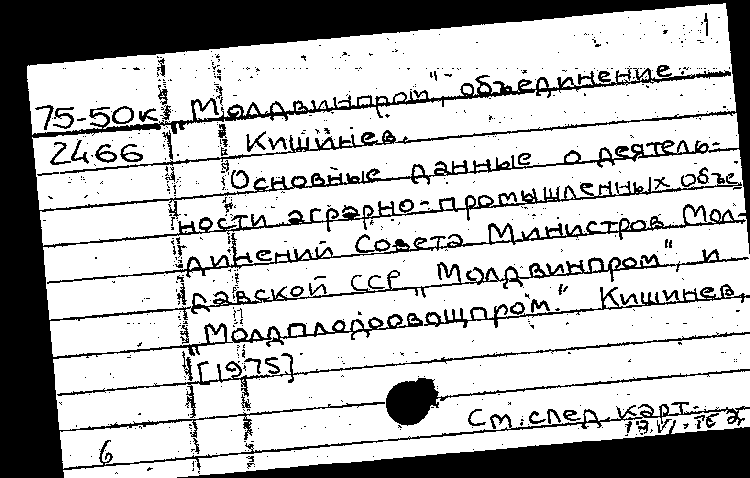 1
75-50к „Молдвинпром", объединение.
2466 Кишинев.
Основные данные о деятель-
ности аграрно-промышленных объе
динений Совета Министров Мол-
давской ССР „Молдвинпром" и
„Молдплодоовощпром." Кишинев,
[1975]
См. след. карт.
6